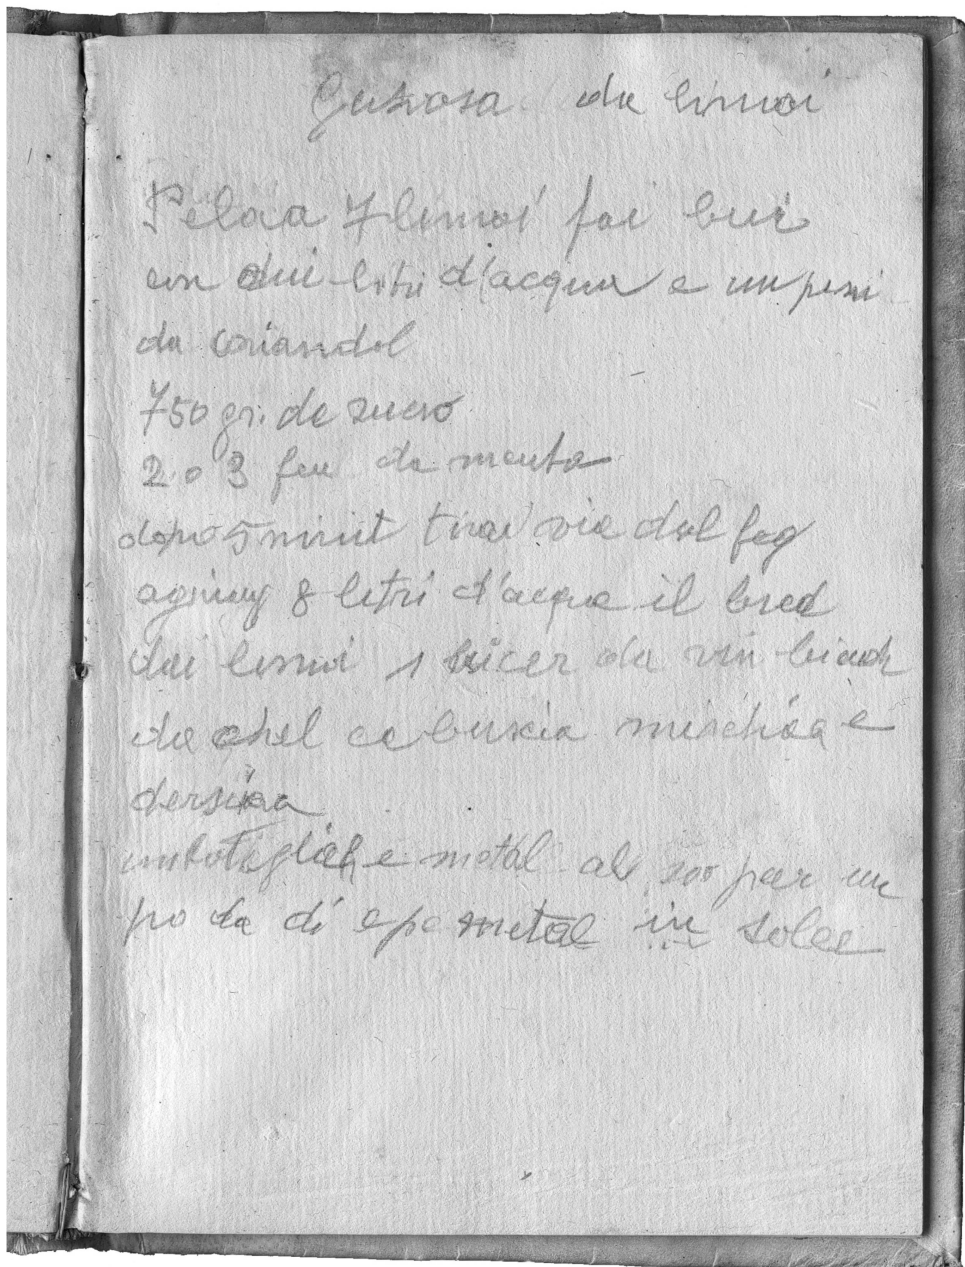 Gasosa da limoi
Pelaa 7 limoi fai bui
con dui litri d'acqua e un pera
da coriandol
750 gr. de zucro
2 o 3 feu da menta
dopo 5 minit tirai via dal fog
agiung 8 letri d'acqua il brod
dai limoi 1 bicer da vin biach
da chel ca buscia mischiáa e
dersiáa
imbotigliah e metal al soo par un
po da dí e pe metal in solee